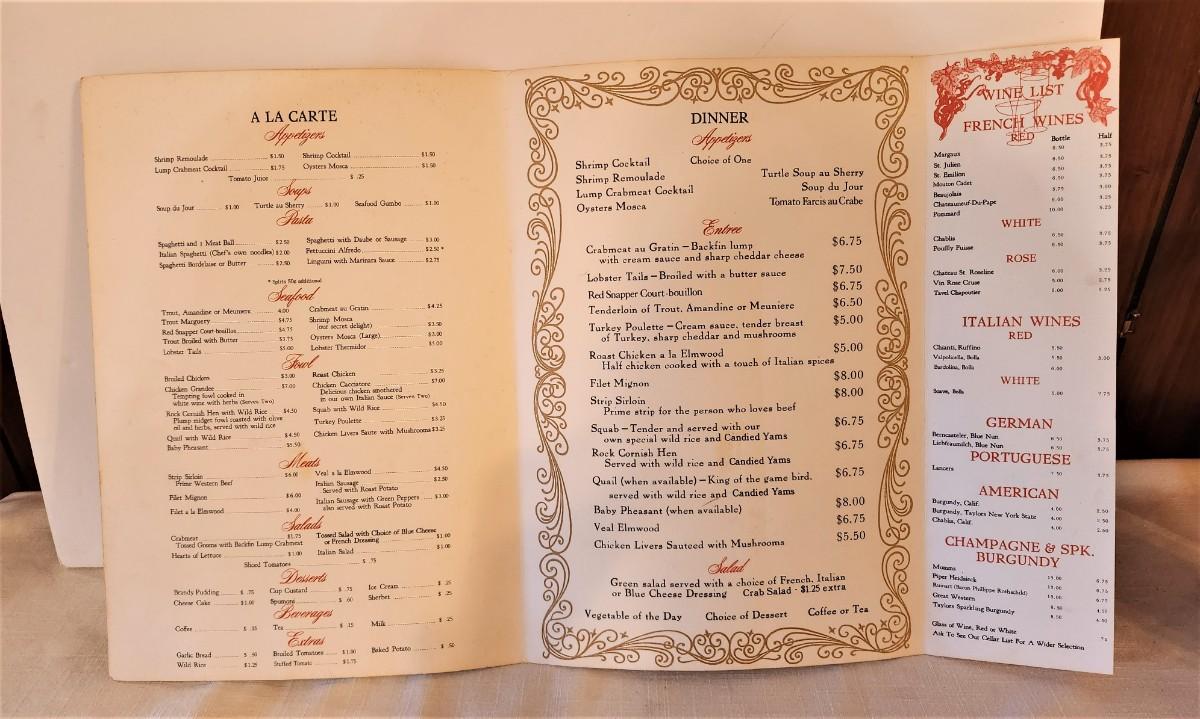 A LA CARTE
Appetizers
Shrimp Remoulade $1.50 Shrimp Cocktail $1.50
Lump Crabmeat Cocktail $1.75 Oysters Mosca $1.50
Tomato Juice $ .25
Soups
Soup du Jour $1.00 Turtle au Sherry $1.00 Seafood Gumbo $1.00
Pasta
Spaghetti and 1 Meat Ball $2.50 Spaghetti with Daube or Sausage $3.00
Italian Spaghetti (Chef's own noodles) $2.00 Fettuccini Alfredo $2.50 *
Spaghetti Bordelaise or Butter $2.50 Linguini with Marinara Sauce $2.75
* Splits 50¢ additional
Seafood
Trout, Amandine or Meuniere 4.00 Crabmeat au Gratin $4.25
Trout Marguery $4.75 Shrimp Mosca
(our secret delight) $3.50
Red Snapper Court-bouillon $4.75 Oysters Mosca (Large) $3.00
Trout Broiled with Butter $3.75 Lobster Thermidor $5.00
Lobster Tails $5.00
Fowl
Broiled Chicken $3.00 Roast Chicken $3.25
Chicken Grandee $7.00 Chicken Cacciatore $7.00
Tempting fowl cooked in Delicious chicken smothered
white wine with herbs (Serves Two) in our own Italian Sauce (Serves Two)
Rock Cornish Hen with Wild Rice $4.50 Squab with Wild Rice $4.50
Plump midget fowl roasted with olive
oil and herbs, served with wild rice Turkey Poulette $3.25
Quail with Wild Rice $4.50 Chicken Livers Saute with Mushrooms $3.25
Baby Pheasant $5.50
Meats
Strip Sirloin $6.00 Veal a la Elmwood $4.50
Prime Western Beef Italian Sausage $2.50
Served with Roast Potato
Filet Mignon $6.00 Italian Sausage with Green Peppers $3.00
also served with Roast Potato
Filet a la Elmwood $4.00
Salads
Crabmeat $1.75 Tossed Salad with Choice of Blue Cheese
Tossed Greens with Backfin Lump Crabmeat or French Dressing $1.00
Hearts of Lettuce $1.00 Italian Salad $1.00
Sliced Tomatoes $ .75
Desserts
Brandy Pudding $ .75 Cup Custard $ .75 Ice Cream $ .25
Cheese Cake $1.00 Spumoni $ .60 Sherbet $ .25
Beverages
Coffee $ .25 Tea $ .25 Milk $ .25
Extras
Garlic Bread $ .50 Broiled Tomatoes $1.00 Baked Potato $ .50
Wild Rice $1.25 Stuffed Tomato $1.75
DINNER
Appetizers
Choice of One
Shrimp Cocktail Turtle Soup au Sherry
Shrimp Remoulade Soup du Jour
Lump Crabmeat Cocktail Tomato Farcis au Crabe
Oysters Mosca
Entree
Crabmeat au Gratin – Backfin lump $6.75
with cream sauce and sharp cheddar cheese
Lobster Tails – Broiled with a butter sauce $7.50
Red Snapper Court-bouillon $6.75
Tenderloin of Trout, Amandine or Meuniere $6.50
Turkey Poulette – Cream sauce, tender breast $5.00
of Turkey, sharp cheddar and mushrooms
Roast Chicken a la Elmwood $5.00
Half chicken cooked with a touch of Italian spices
Filet Mignon $8.00
Strip Sirloin $8.00
Prime strip for the person who loves beef
Squab – Tender and served with our $6.75
own special wild rice and Candied Yams
Rock Cornish Hen $6.75
Served with wild rice and Candied Yams
Quail (when available) – King of the game bird, $6.75
served with wild rice and Candied Yams
Baby Pheasant (when available) $8.00
Veal Elmwood $6.75
Chicken Livers Sauteed with Mushrooms $5.50
Salad
Green salad served with a choice of French, Italian
or Blue Cheese Dressing Crab Salad - $1.25 extra
Vegetable of the Day Choice of Dessert Coffee or Tea
WINE LIST
FRENCH WINES
RED Bottle Half
Margaux
St. Julien
St. Emilion
Mouton Cadet
Beaujolais
Chateauneuf-Du-Pape
Pommard 10.00
WHITE
Chablis
Pouilly Fuisse
ROSE
Chateau St. Roseline
Vin Rose Cruse
Tavel Chapoutier
ITALIAN WINES
RED
Chianti, Ruffino
Valpolicella, Bolla
Bardolino, Bolla
WHITE
Soave, Bolla
GERMAN
Berncasteler, Blue Nun
Liebfraumilch, Blue Nun
PORTUGUESE
Lancers
AMERICAN
Burgundy, Calif.
Burgundy, Taylors New York State
Chablis, Calif.
CHAMPAGNE & SPK.
BURGUNDY
Mumms
Piper Heidsieck
Ruinart (Baron Philippe Rothschild)
Great Western
Taylors Sparkling Burgundy
Glass of Wine, Red or White
Ask To See Our Cellar List For A Wider Selection